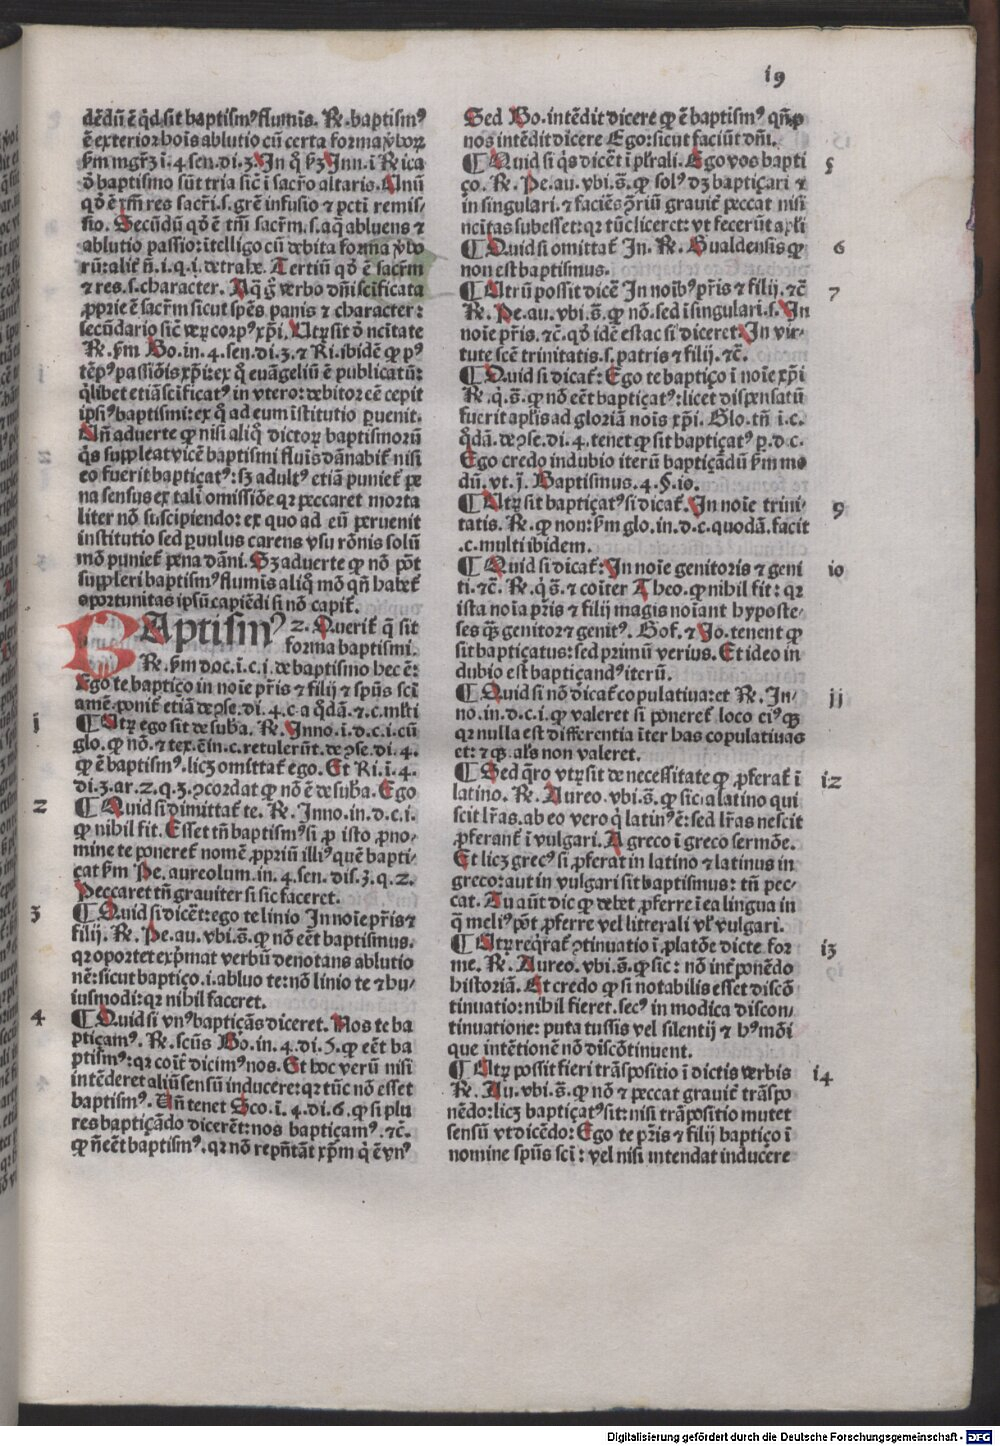 19
dẽdũ ẽ q̃d sit baptismꝰ flumĩs. Rͤ. baptismꝰ
ẽ exterior hoĩs ablutio cũ certa forma ꝟboꝝ
ẜm mgrʒ ĩ.4 sen.di.3. In q̃ ẜʒ Inn.ĩ Rica
ꝺ̃ baptismo sũt tria sic̃ ĩ sacr̃o altaris. Unũ
qꝺ̃ ẽ tm̃ res sacr̃i.s. gr̃e infusio ⁊ pcti remis/
sio. Secũdũ qꝺ̃ ẽ tm̃ sacr̃m.s. aq̃ abluens ⁊
ablutio passio: ĩtelligo cũ debita forma ꝟbo
rũ: alit̃ ñ.i.q.i. detrahe. Tertiũ qꝺ̃ ẽ sacr̃m
⁊ res.s. character. Aq̃ g̃ verbo dñi scificata
ꝓprie ẽ sacr̃m sicut spẽs panis ⁊ character:
secũdario sic̃ veꝝ corpꝰ xp̃i. Utꝝ sit ꝺ̃ ncĩtate
Rͤ. ẜm Bo.in.4.sen.di.3.⁊ Ri.ibidẽ ꝙ pꝰ
tẽpꝰ passiõis xp̃i: ex q̃ euãgeliũ ẽ publicatũ:
q̃libet etiã scificatꝰ in vtero: debitor cẽ cepit
ipsiꝰ baptismi: ex q̃ ad eum ĩstitutio ꝑuenit.
Uñ aduerte ꝙ nisi aliq̃ dictoꝝ baptismorũ
q̃s suppleat vicẽ baptismi fluĩs dãnabit̃ nisi
eo fuerit baptiçatꝰ: sʒ adultꝰ etiã puniet̃ pe
na sensus ex tali omissiõe qꝛ peccaret morta
liter nõ suscipiendo: ex quo ad eũ peruenit
institutio sed ꝑuulus carens vsu rõnis solũ
mõ puniet̃ pena dãni. Sʒ aduerte ꝙ nõ põt
suppleri baptismꝰ flumĩs aliq̃ mõ qñ habet̃
oportunitas ipsũ capiẽdi si nõ capit̃.
BAptismꝰ 2. Querit̃ q̃ sit
forma baptismi.
Rͤ. ẜm doc.ĩ.c.i. de baptismo hec ẽ:
Ego te baptiço in noĩe pr̃is ⁊ filij ⁊ spũs sci
amẽ. ponit̃ etiã de ꝯse.di.4.c.a q̃dã.⁊.c.mlti
1 ¶ Utꝝ ego sit de suba. Rͤ. Inno.i.d.c.i.cũ
glo. ꝙ nõ.⁊ tex.ẽ in.c. retulerũt. de ꝯse.di.4.
ꝙ ẽ baptismꝰ. licʒ omittat̃ ego. Et Ri.i.4.
di.3.ar.2.q.3. ꝯcordat ꝙ nõ ẽ de suba. Ego
2 ¶ Quid si dimittat̃ te. Rͤ. Inno.in.d.c.i.
ꝙ nihil fit. Esset tñ baptismꝰ si ꝓ isto ꝓno/
mine te poneret̃ nomẽ ꝓpriũ illiꝰ quẽ bapti/
çat ẜm Pe. aureolum.in.4.sen.dis.3.q.2.
Peccaret tñ grauiter si sic faceret.
3 ¶ Quid si dicẽt: ego te linio In noĩe pr̃is ⁊
filij. Rͤ. Pe.au.vbi.s̃. ꝙ nõ eẽt baptismus.
qꝛ oportet exp̃mat verbũ denotans ablutio
nẽ: sicut baptiço.i. abluo te: nõ linio te ⁊ hu/
iusmodi: qꝛ nihil faceret.
4 ¶ Quid si vnꝰ baptiçãs diceret. Nos te ba
ptiçamꝰ. Rͤ. scũs Bo.in.4.di.5. ꝙ eẽt ba
ptismꝰ: qꝛ coit̃ dicimꝰ nos. Et hoc verũ nisi
intẽderet aliũ sensũ inducere: qꝛ tũc nõ esset
baptismꝰ. Uñ tenet Sco.ĩ.4.di.6. ꝙ si plu
res baptiçãdo dicerẽt: nos baptiçamꝰ.⁊c̃.
ꝙ ñ eẽt baptismꝰ. qꝛ nõ rep̃ntãt xp̃m q̃ ẽ vnꝰ
Sed Bo. intẽdit dicere ꝙ ẽ baptismꝰ qñ ꝑ
nos intẽdit dicere Ego: sicut faciũt dñi.
¶ Quid si q̃s dicẽt ĩ pl̃rali. Ego vos bapti 5
ço. Rͤ. Pe.au.vbi.s̃. ꝙ solꝰ dʒ baptiçari ⁊
in singulari.⁊ faciẽs ꝯ̃riũ grauit̃ peccat nisi
ncĩtas subesset: qꝛ tũc liceret: vt fecerũt ap̃li
¶ Quid si omittat̃ In. Rͤ. Gualdensis ꝙ 6
non est baptismus.
¶ Utrũ possit dicẽ In noĩbꝰ pr̃is ⁊ filij.⁊c̃ 7
Rͤ. Pe.au.vbi.s̃. ꝙ nõ. sed ĩ singulari.s. In
noĩe pr̃is.⁊c̃. qꝺ̃ idẽ est ac si diceret: In vir/
tute scẽ trinitatis.s. patris ⁊ filij.⁊c̃.
¶ Quid si dicat̃: Ego te baptiço ĩ noĩe xp̃i
Rͤ. q̃.s̃. ꝙ nõ eẽt baptiçatꝰ: licet dispensatũ
fuerit apl̃is ad gloriã noĩs xp̃i. Glo. tñ i.c.
q̃dã. de ꝯse.di.4. tenet ꝙ sit baptiçatꝰ ꝑ.d.c.
Ego credo in dubio iterũ baptiçãdũ ẜm mo
dũ. vt.j. Baptismus.4.§.10.
¶ Utꝝ sit baptiçatꝰ si dicat̃. In noĩe trini/ 9
tatis. Rͤ. ꝙ non: ẜm glo.in.d.c. quodã. facit
.c. multi ibidem.
¶ Quid si dicat̃: In noĩe genitoris ⁊ geni 10
ti.⁊c̃. Rͤ. q̃.s̃.⁊ coĩter Theo. ꝙ nihil fit: qꝛ
ista noĩa pr̃is ⁊ filij magis noĩant hyposte/
ses q̃ʒ genitor ⁊ genitꝰ. Gof.⁊ Jo. tenent ꝙ
sit baptiçatus: sed primũ verius. Et ideo in
dubio est baptiçandꝰ iterũ.
¶ Quid si nõ dicat̃ copulatiua: et Rͤ. In/ 11
no.in.d.c.i. ꝙ valeret si poneret̃ loco eiꝰ qʒ
qꝛ nulla est differentia ĩter has copulatiuas
et: ⁊ qʒ. al̃s non valeret.
¶ Sed q̃ro vtꝝ sit de necessitate ꝙ ꝓferat̃ ĩ 12
latino. Rͤ. Aureo.vbi.s̃. ꝙ sic: a latino qui
scit lr̃as. ab eo vero q̃ latinꝰ ẽ: sed lr̃as nescit
ꝓferant̃ ĩ vulgari. A greco ĩ greco sermõe.
Et licʒ grecꝰ si ꝓferat in latino ⁊ latinus in
greco: aut in vulgari sit baptismus: tñ pec/
cat. Au aũt dic ꝙ debet ꝓferre ĩ ea lingua in
q̃ meliꝰ põt ꝓferre vel litterali vl̃ vulgari.
¶ Utꝝ req̃rat̃ ꝯtinuatio ĩ ꝓlatõe dicte for 13
me. Rͤ. Aureo.vbi.s̃. ꝙ sic: nõ int̃ponẽdo
historiã. Et credo ꝙ si notabilis esset discõ
tinuatio: nihil fieret. secꝰ in modica discon/
tinuatione: puta tussis vel silentij ⁊ hꝰmõi
que intẽtionẽ nõ discõtinuent.
¶ Utꝝ possit fieri trãspositio ĩ dictis verbis 14
Rͤ. Au.vbi.s̃. ꝙ nõ ⁊ peccat grauit̃ trãspo
nẽdo: licʒ baptiçatꝰ sit: nisi trãpositio mutet
sensũ vt dicẽdo: Ego te pr̃is ⁊ filij baptiço ĩ
nomine spũs sci: vel nisi intendat inducere
Digitalisierung gefördert durch die Deutsche Forschungsgemeinschaft - DFG